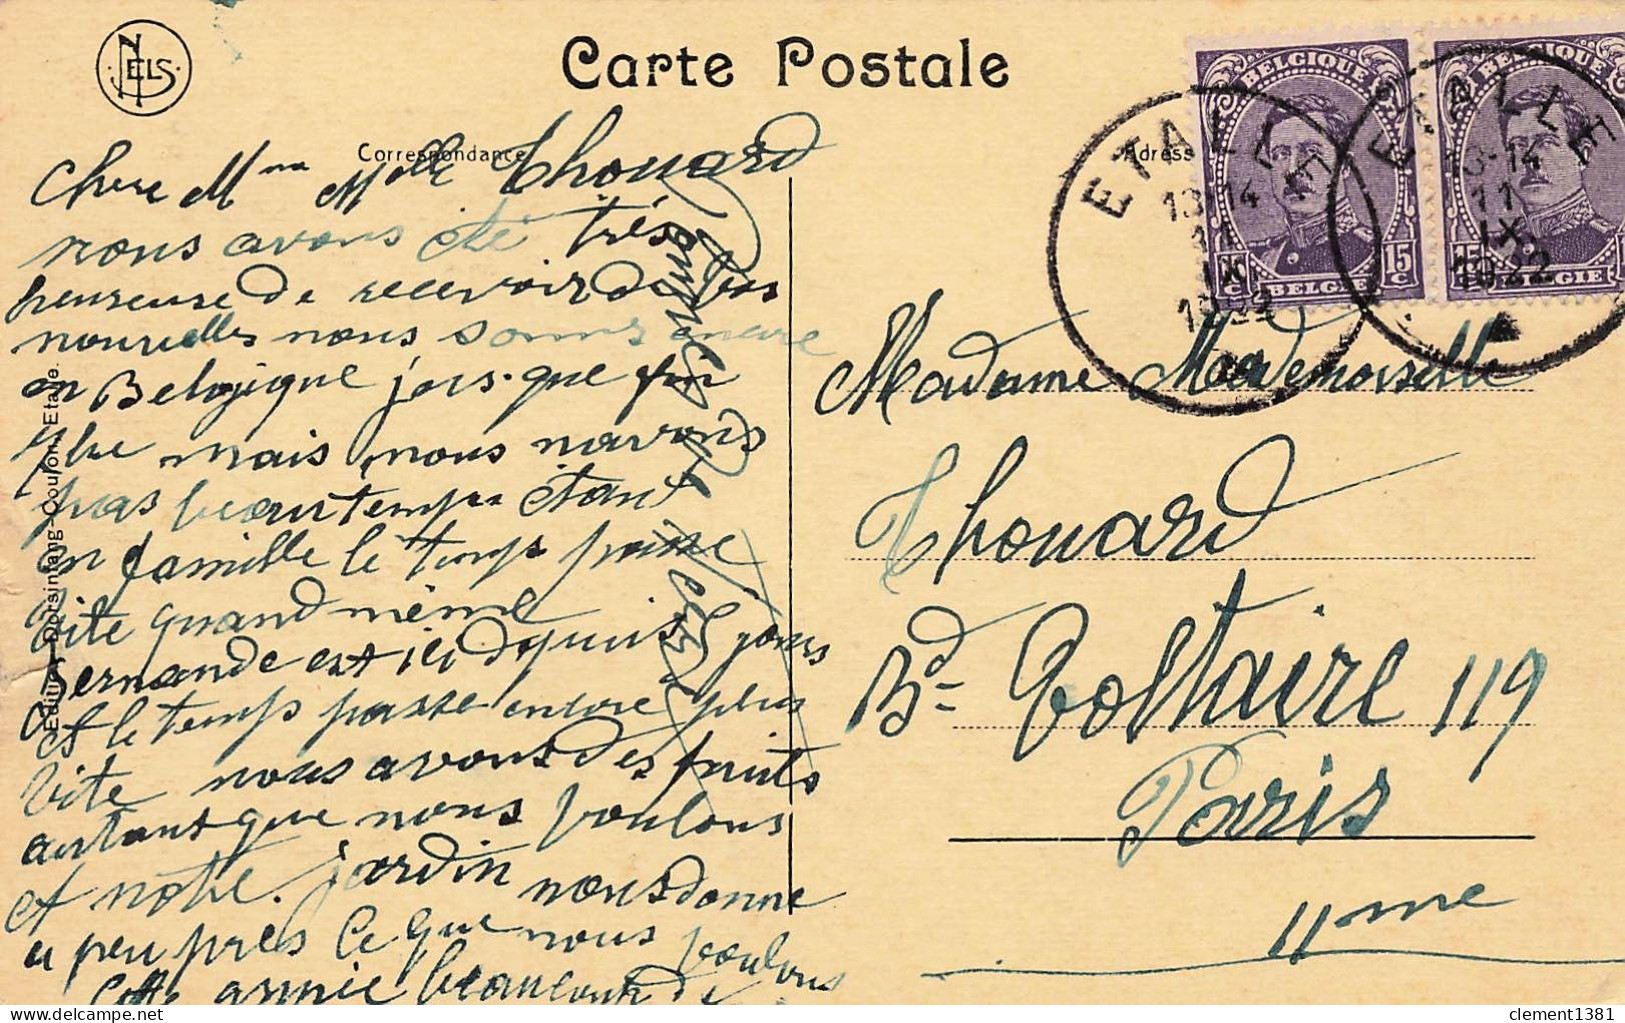 NELS
Carte Postale
Correspondance
Adresse
BELGIQUE
BELGIQUE
15 C
BELGIE
15
BELGIE
ETALLE
13-14
11
IX
1922
ETALLE
13-14
11
IX
1922
Chere Mme Melle Thouard
nous avons été très
heureuse de recevoir de vos
nouvelles nous somms encore
en Belgique jors que fin
7bre mais nous navons
pas beau temps étant
en famille le temps passe
vite quand même
Fernande est ici depuis 8 jours
et le temps passe encore plus
vite nous avons des fruits
autant que nous voulons
et notre jardin nous donne
a peu près ce que nous voulons
cette année beaucoup de
Madame Mademoiselle
Thouard
Bd Voltaire 119
Paris
11me
Edition Dorsinfang-Coulon, Etalle.
clement1381